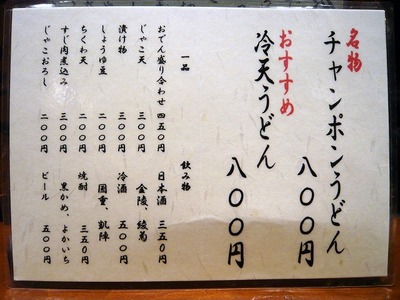 名物
チャンポンうどん
八〇〇円
おすすめ
冷天うどん
八〇〇円
一品
おでん盛り合わせ 四五〇円
じゃこ天 三〇〇円
漬け物 三〇〇円
しょうゆ豆 二〇〇円
ちくわ天 二〇〇円
すじ肉煮込み 三〇〇円
じゃこおろし 二〇〇円
飲み物
日本酒 三五〇円
金陵、綾菊
冷酒 五〇〇円
国重、凱陣
焼酎 三五〇円
黒かめ、よかいち
ビール 五〇〇円